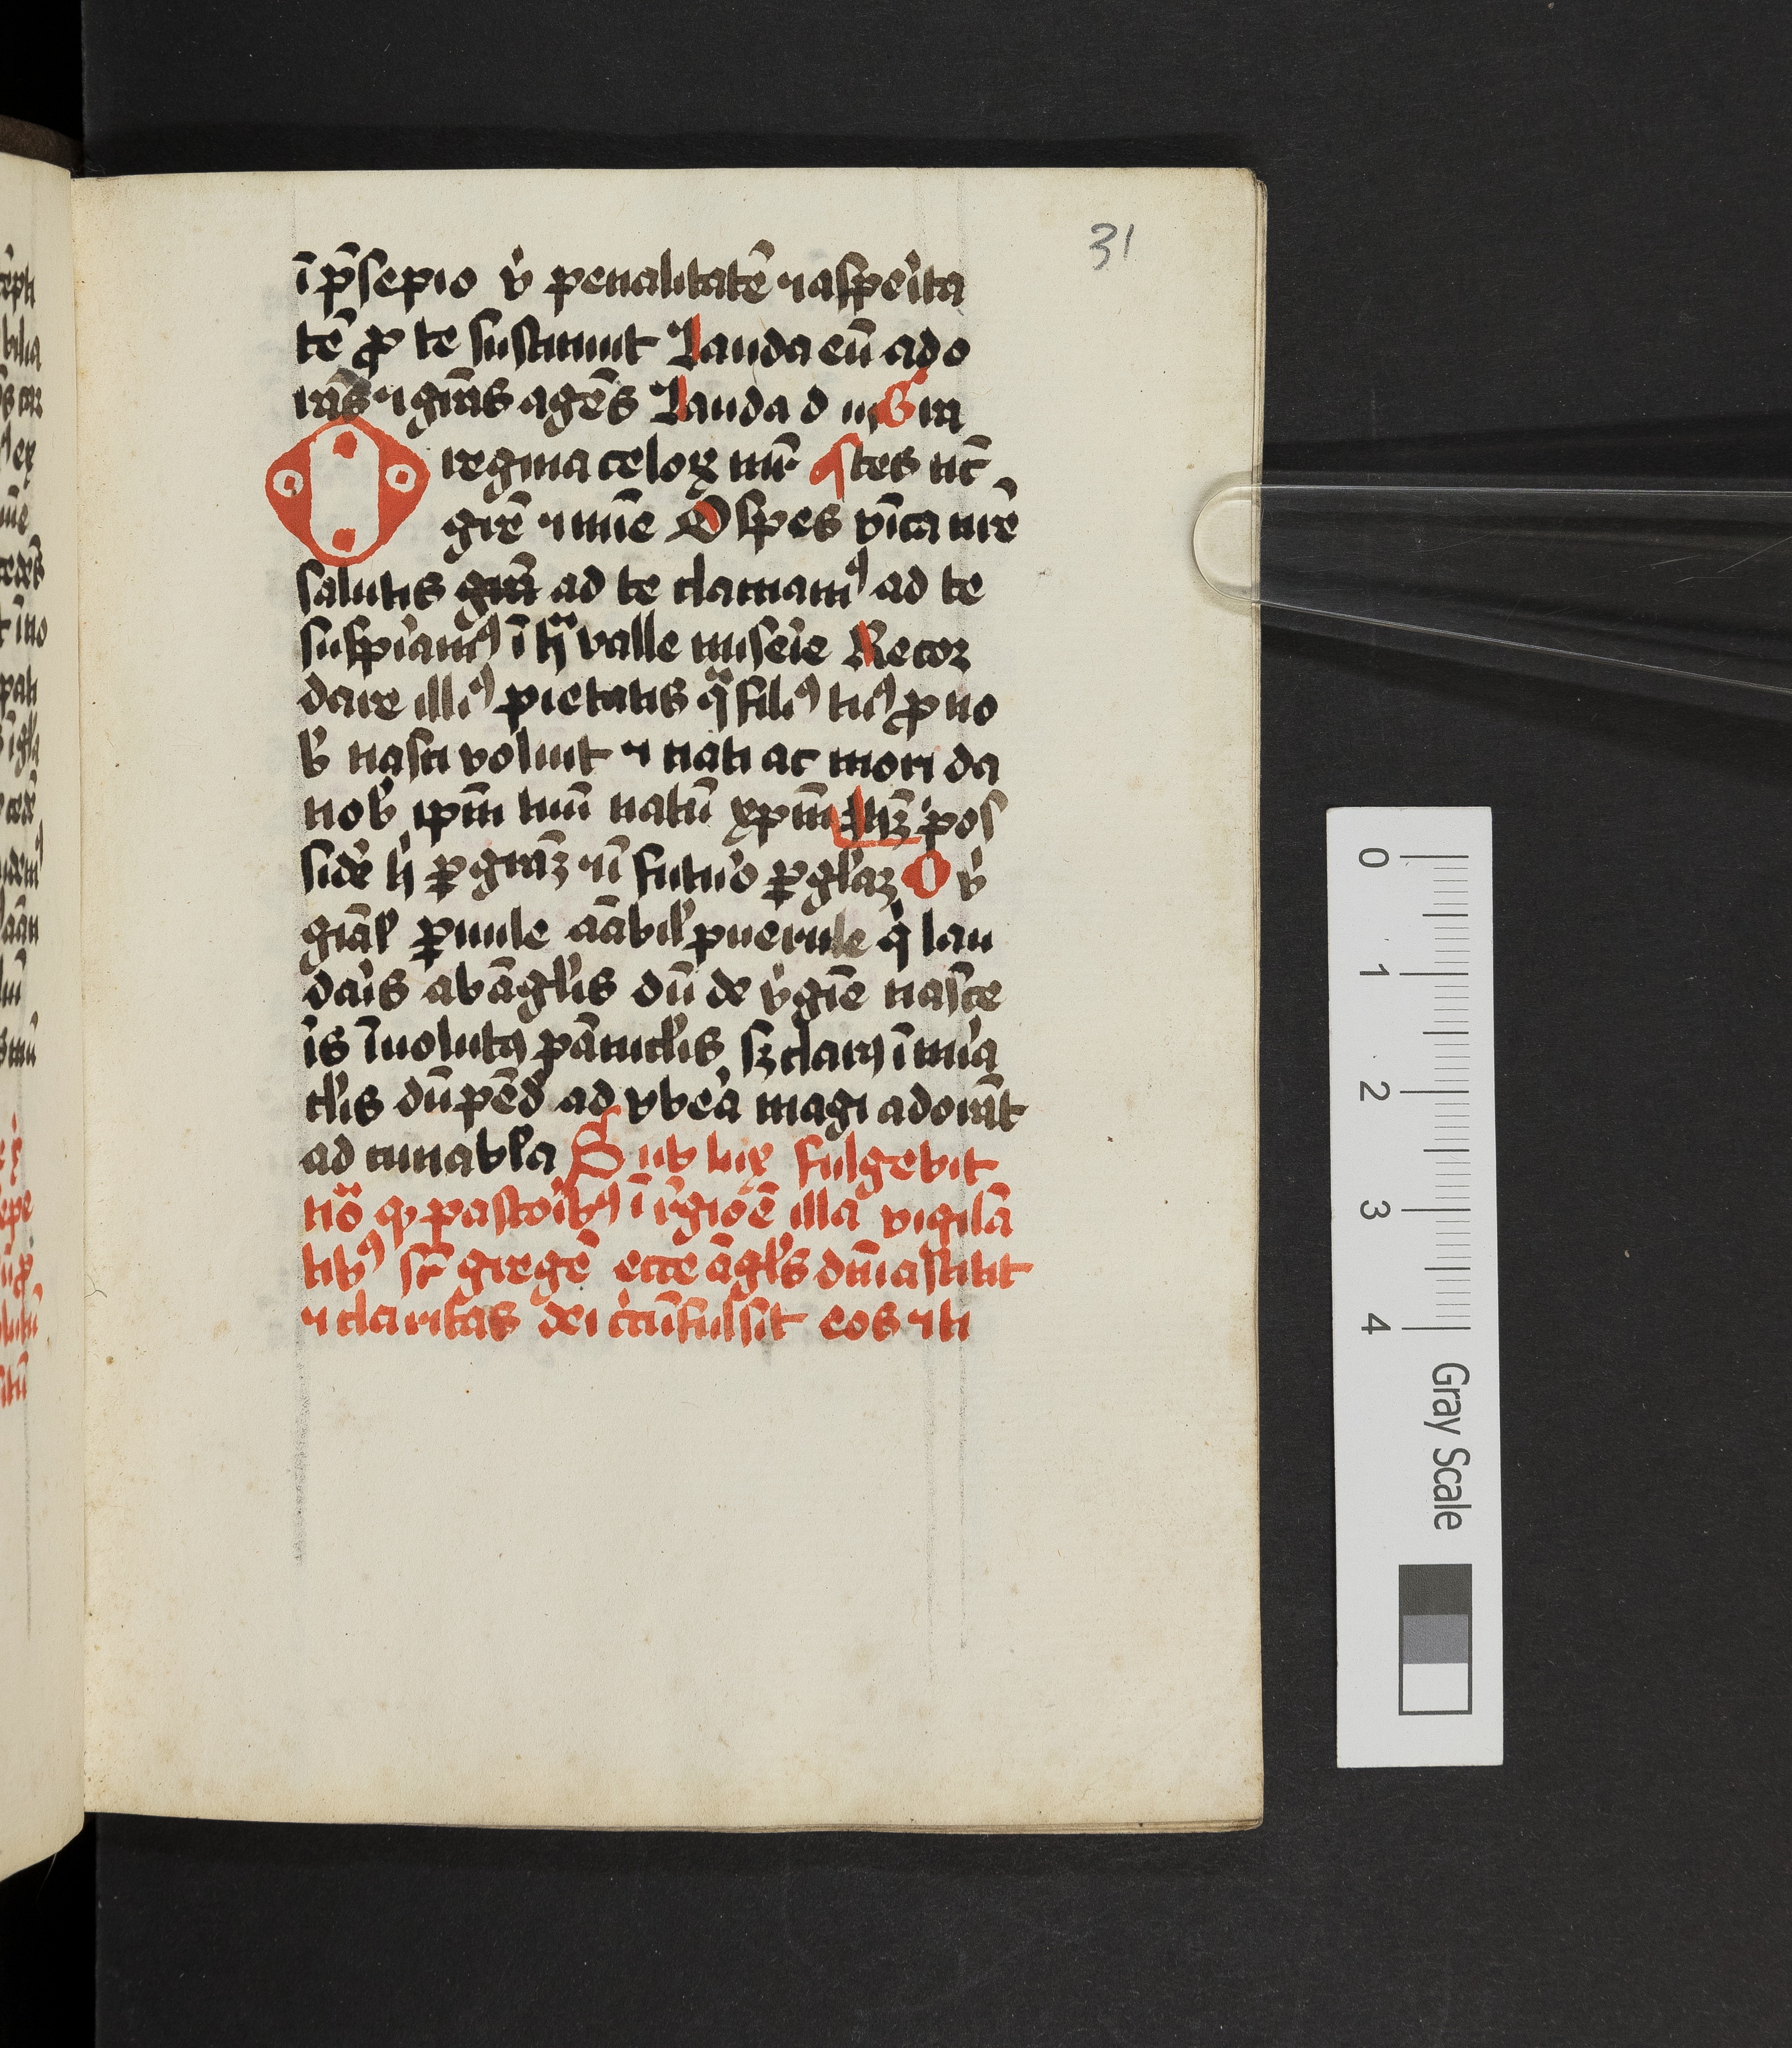 31
ī p̄sepio v̓ penalitatē ⁊ aspeı̓ta
tē ꝓ te sustinuit Lauda eū ado
rās ⁊ gr̄as agēs Lauda d
regina celoꝝ mr̄
gr̄e ⁊ mīe O spes vīca nr̄e
salutis ad te clamamꝰ ad te
suspiramꝰ ī hͣ valle miseı̓e Recor
dare illiꝰ pietatis qͣ filiꝰ tuꝰ ꝓ no
b̓ nasci voluit ⁊ pati ac mori da
nob̓ ip̄m tuū natū xp̄m pos
sidē h̓ ꝑ gr̄aʒ ⁊ ī futuı̓o ꝑ gl̓aʒ O v̓
ꝑuule aābil̓ puerule q̓ lau
dar̓is ab āgl̓is dū de v̓gīe nasce
r̓is īuolutꝰ pānicl̓is sʒ clarꝰ ī mı̓a
cl̓is dū ad vbeā magi adorāt
ad cunabl̓a Sub lux fulgebit
pastoı̓ibꝰ ī r̓gioē illa vigilā
tibꝰ sr̄ gregē ecce āgl̓s dn̄i astitit
⁊ claritas dei cı̓cūfulsit eos ⁊ ti
0
1
2
3
4
Gray Scale